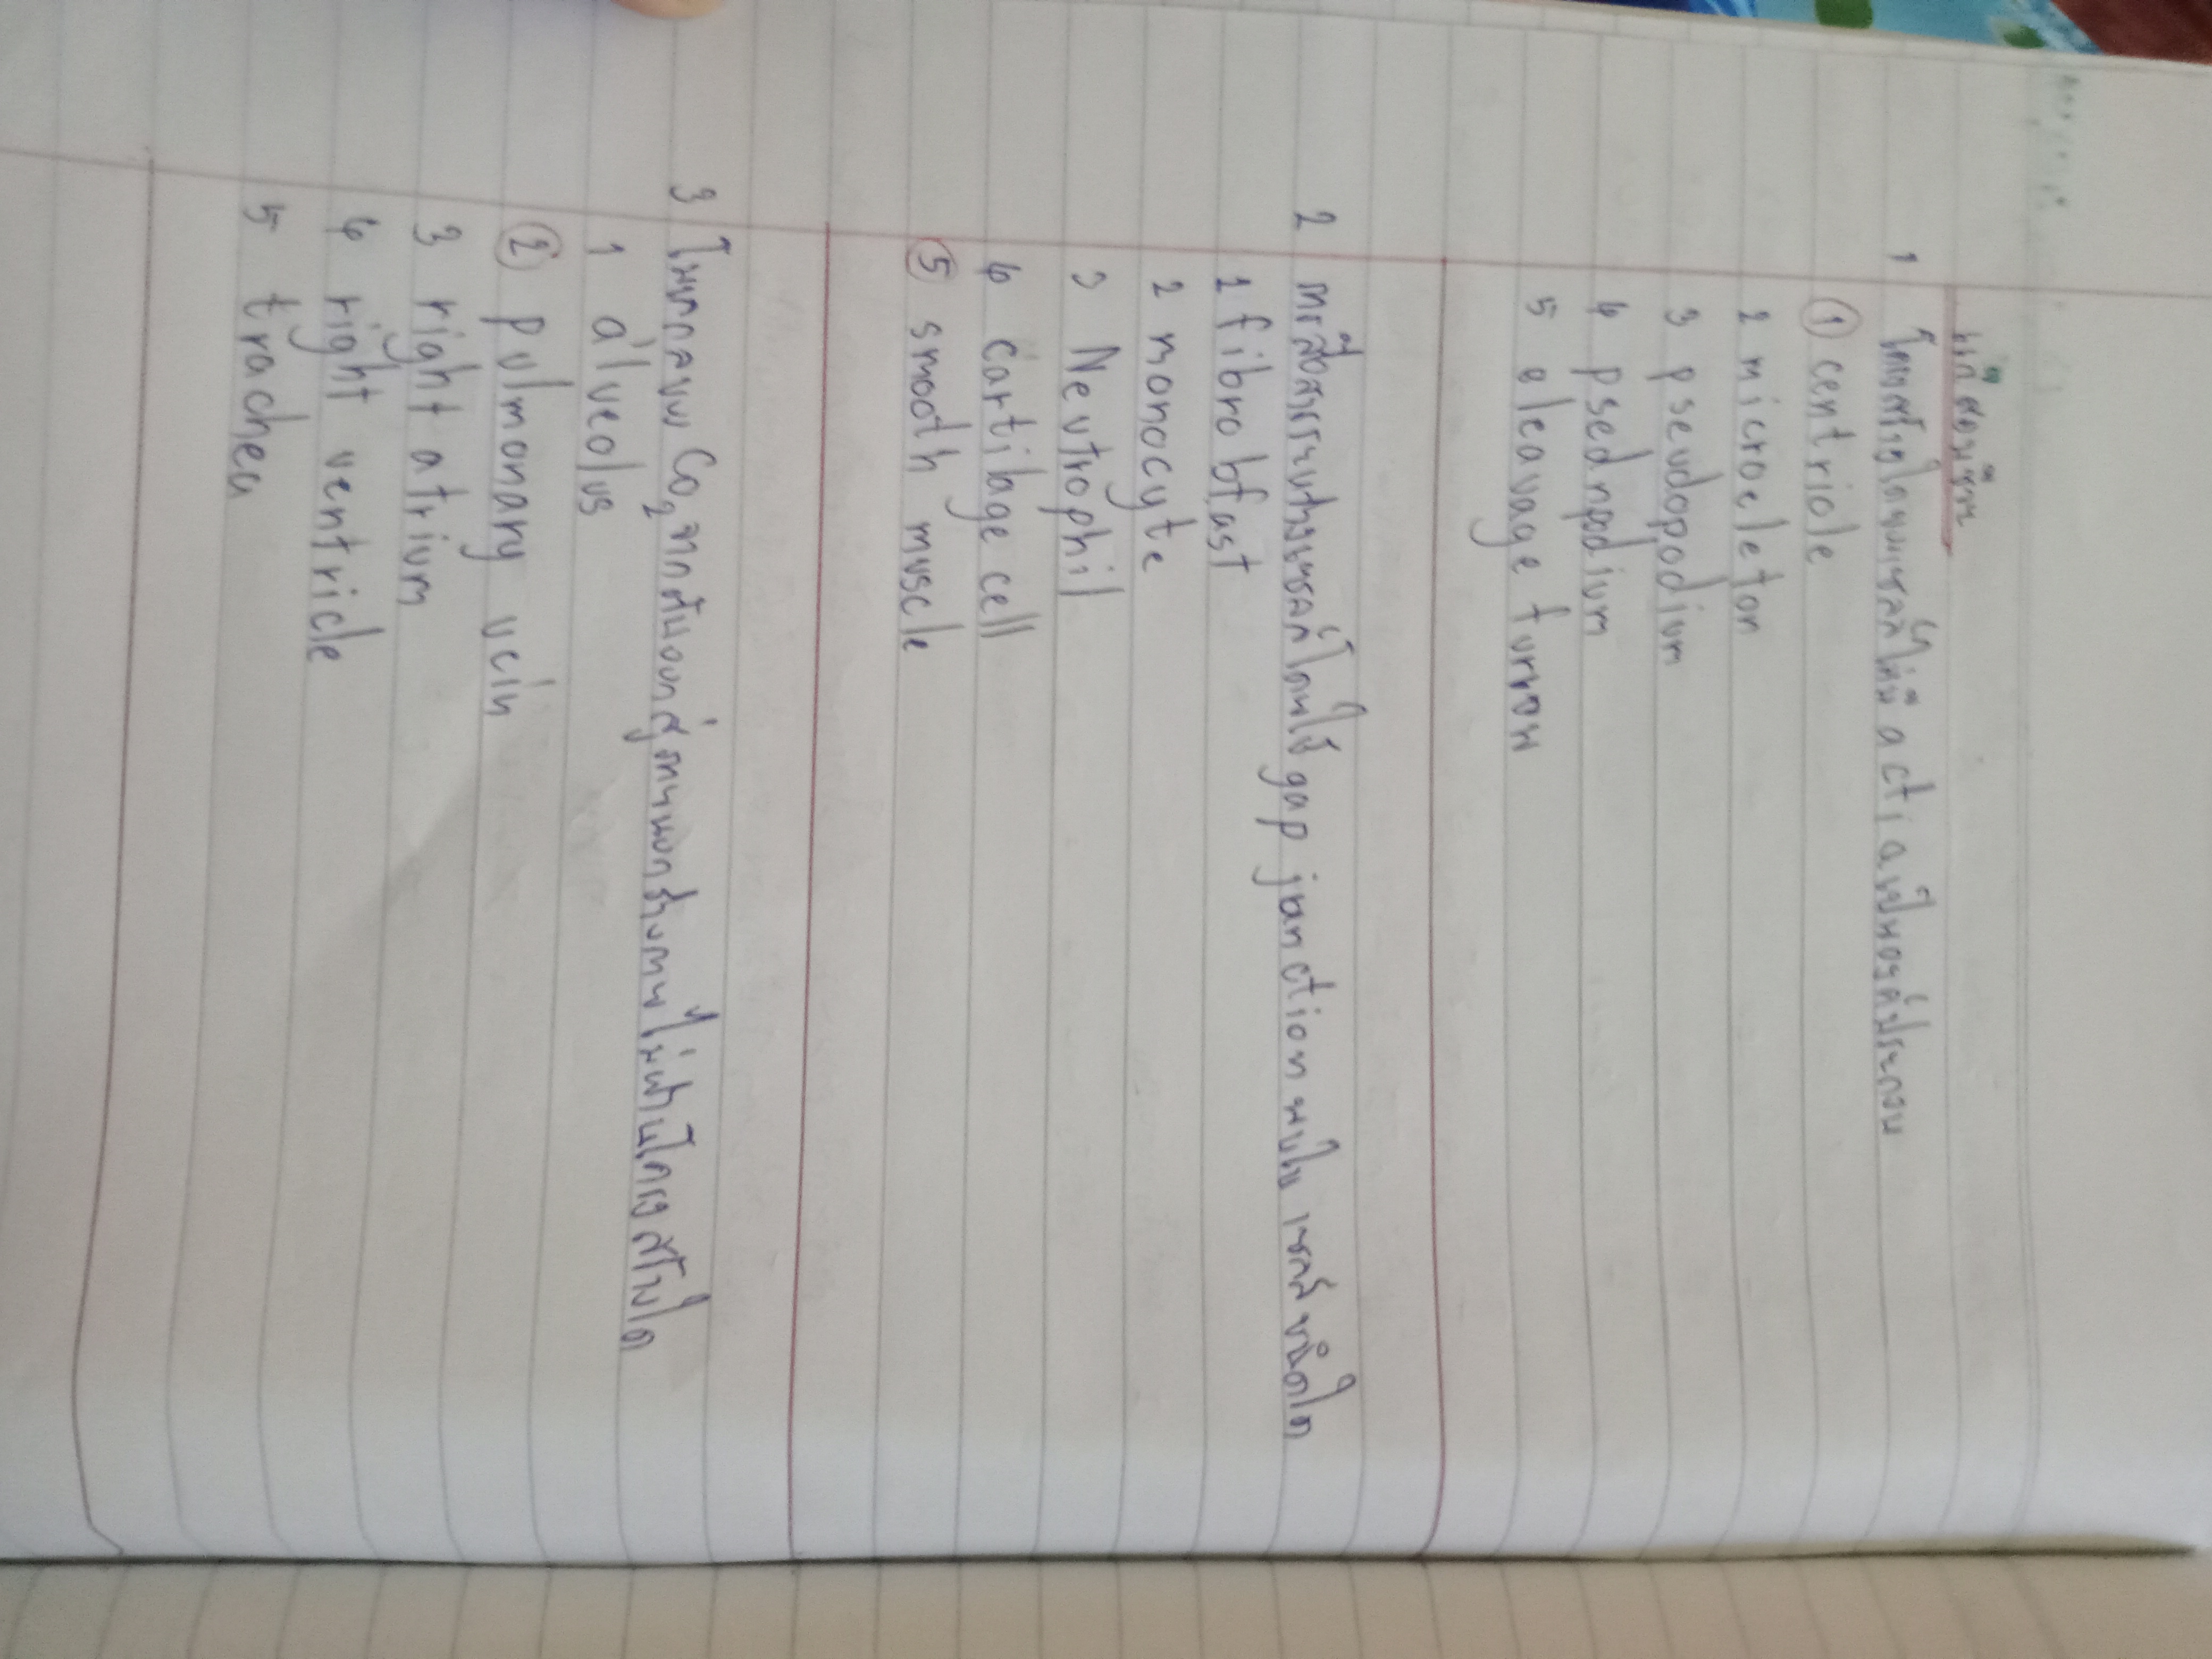 แก้สอบชีวะ
1 โครงสร้างใดของเซลล์ไม่มี actin เป็นองค์ประกอบ
① centriole
2 microeleton
3 pseudopodium
4 psednpodium
5 eleavage furrow
2 การสื่อสารระหว่างเซลล์โดยใช้ gap junction พบใน เซลล์ ชนิดใด
1 fibrobfast
2 monocyte
3 Neutrophil
4 cartilage cell
⑤ smooth muscle
3 โมเลกุลของ CO2 จากตับออกสู่ภายนอกร่างกาย ไม่ผ่านโครงสร้างใด
1 alveolus
② pulmonary vein
3 right atrium
4 right ventricle
5 trachea